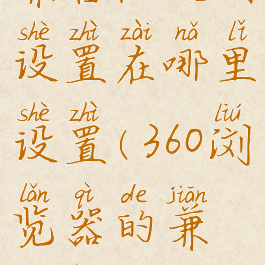 shè zhì zài nǎ lǐ
设置在哪里
shè zhì liú
设置(360浏
lǎn qì de jiān
览器的兼